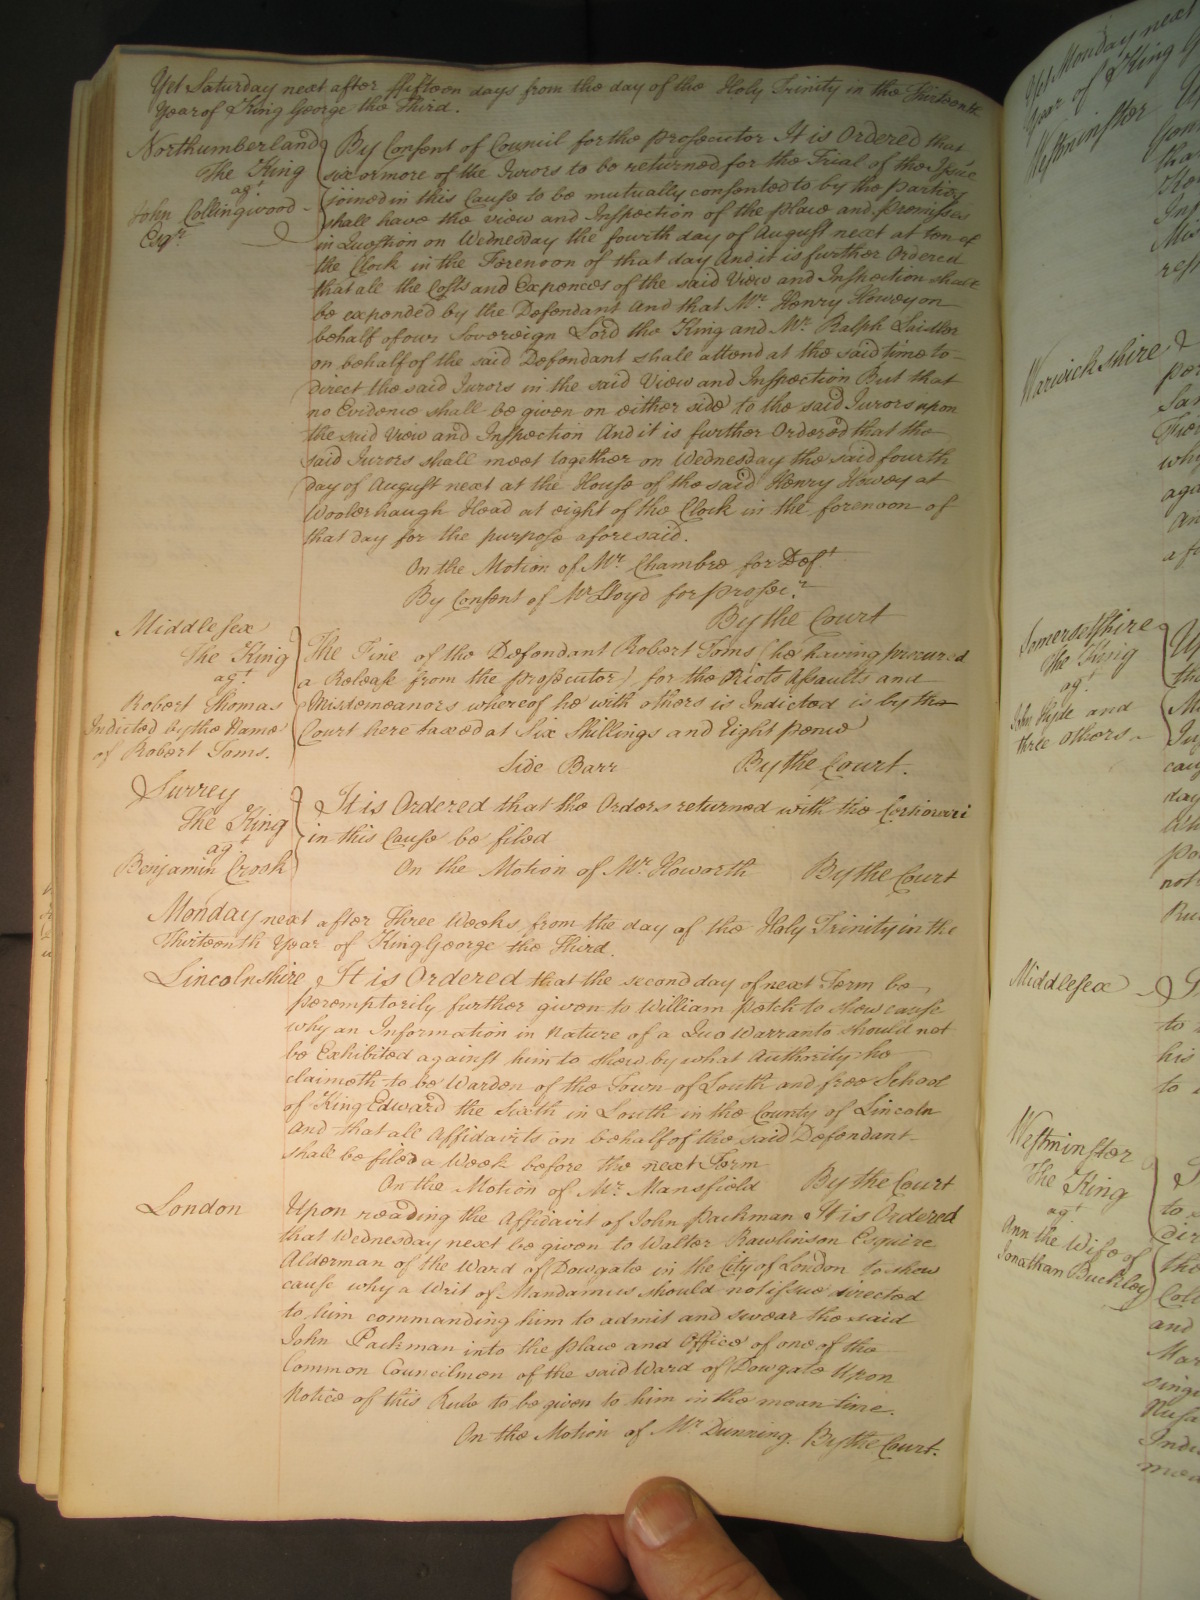 Yet Saturday next after ffifteen days from the day of the Holy Trinity in the Thirteenth
Year of King George the Third.
Northumberland
The King
agt
John Collingwood
Esqr
By Consent of Council for the prosecutor It is Ordered that
six or more of the Jurors to be returned for the Trial of the Issue
joined in this Cause to be mutually consented to by the parties
shall have the view and Inspection of the place and premises
in Question on Wednesday the fourth day of August next at ten of
the Clock in the Forenoon of that day And it is further Ordered
that all the Costs and Expences of the said View and Inspection shall
be expended by the Defendant And that Mr. Henry Howey on
behalf of our Sovereign Lord the King and Mr. Ralph
on behalf of the said Defendant shall attend at the said time to
Direct the said Jurors in the said View and Inspection But that
no Evidence shall be given on either side to the said Jurors upon
the said View and Inspection And it is further Ordered that the
said Jurors shall meet together on Wednesday the said fourth
day of August next at the House of the said Henry Howey at
Woolerhaugh Head at eight of the Clock in the forenoon of
that day for the purpose aforesaid.
On the Motion of Mr. Chambre for Deft
By Consent of Mr Lloyd for prosecr.
By the Court
Middlesex
The King
agt
Robert Thomas
Indicted by the Name
of Robert Toms.
The Fine of the Defendant Robert Toms (he having procured
a Release from the prosecutor) for the Riots Assaults and
Misdemeanors whereof he with others is Indicted is by the
Court here taxed at Six Shillings and Eight pence
Side Barr By the Court.
Surrey
The King
agt
Benjamin Crook
It is Ordered that the Orders returned with the Certiorari
in this Cause be filed
On the Motion of Mr. Howorth By the Court
Monday next after Three Weeks from the day of the Holy Trinity in the
Thirteenth Year of King George the Third.
Lincolnshire It is Ordered that the second day of next Term be
peremptorily further given to William petch to show cause
why an Information in Nature of a Quo Warranto should not
be Exhibited against him to show by what Authority he
claimeth to be Warden of the Town of Louth and free School
of King Edward the Sixth in Louth in the County of Lincoln
And that all Affidavits on behalf of the said Defendant
shall be filed a Week before the next Term
On the Motion of Mr. Mansfield By the Court
London Upon reading the Affidavit of John packman It is Ordered
that Wednesday next be given to Walter Rawlinson Esquire
Alderman of the Ward of Dowgate in the City of London to show
cause why a Writ of Mandamus should not issue directed
to him commanding him to admit and swear the said
John Packman into the place and Office of one of the
Common Councilmen of the said Ward of Dowgate Upon
Notice of this Rule to be given to him in the mean time.
On the Motion of Mr. Dunning. By the Court.
Yet Monday next
Year of King G
Westminster
Warwickshire
Somersetshire
The King
agt
John Hyde and
three others
Middlesex
to
his
to
Westminster
The King
agt
Ann the Wife of
Jonathan Buckley